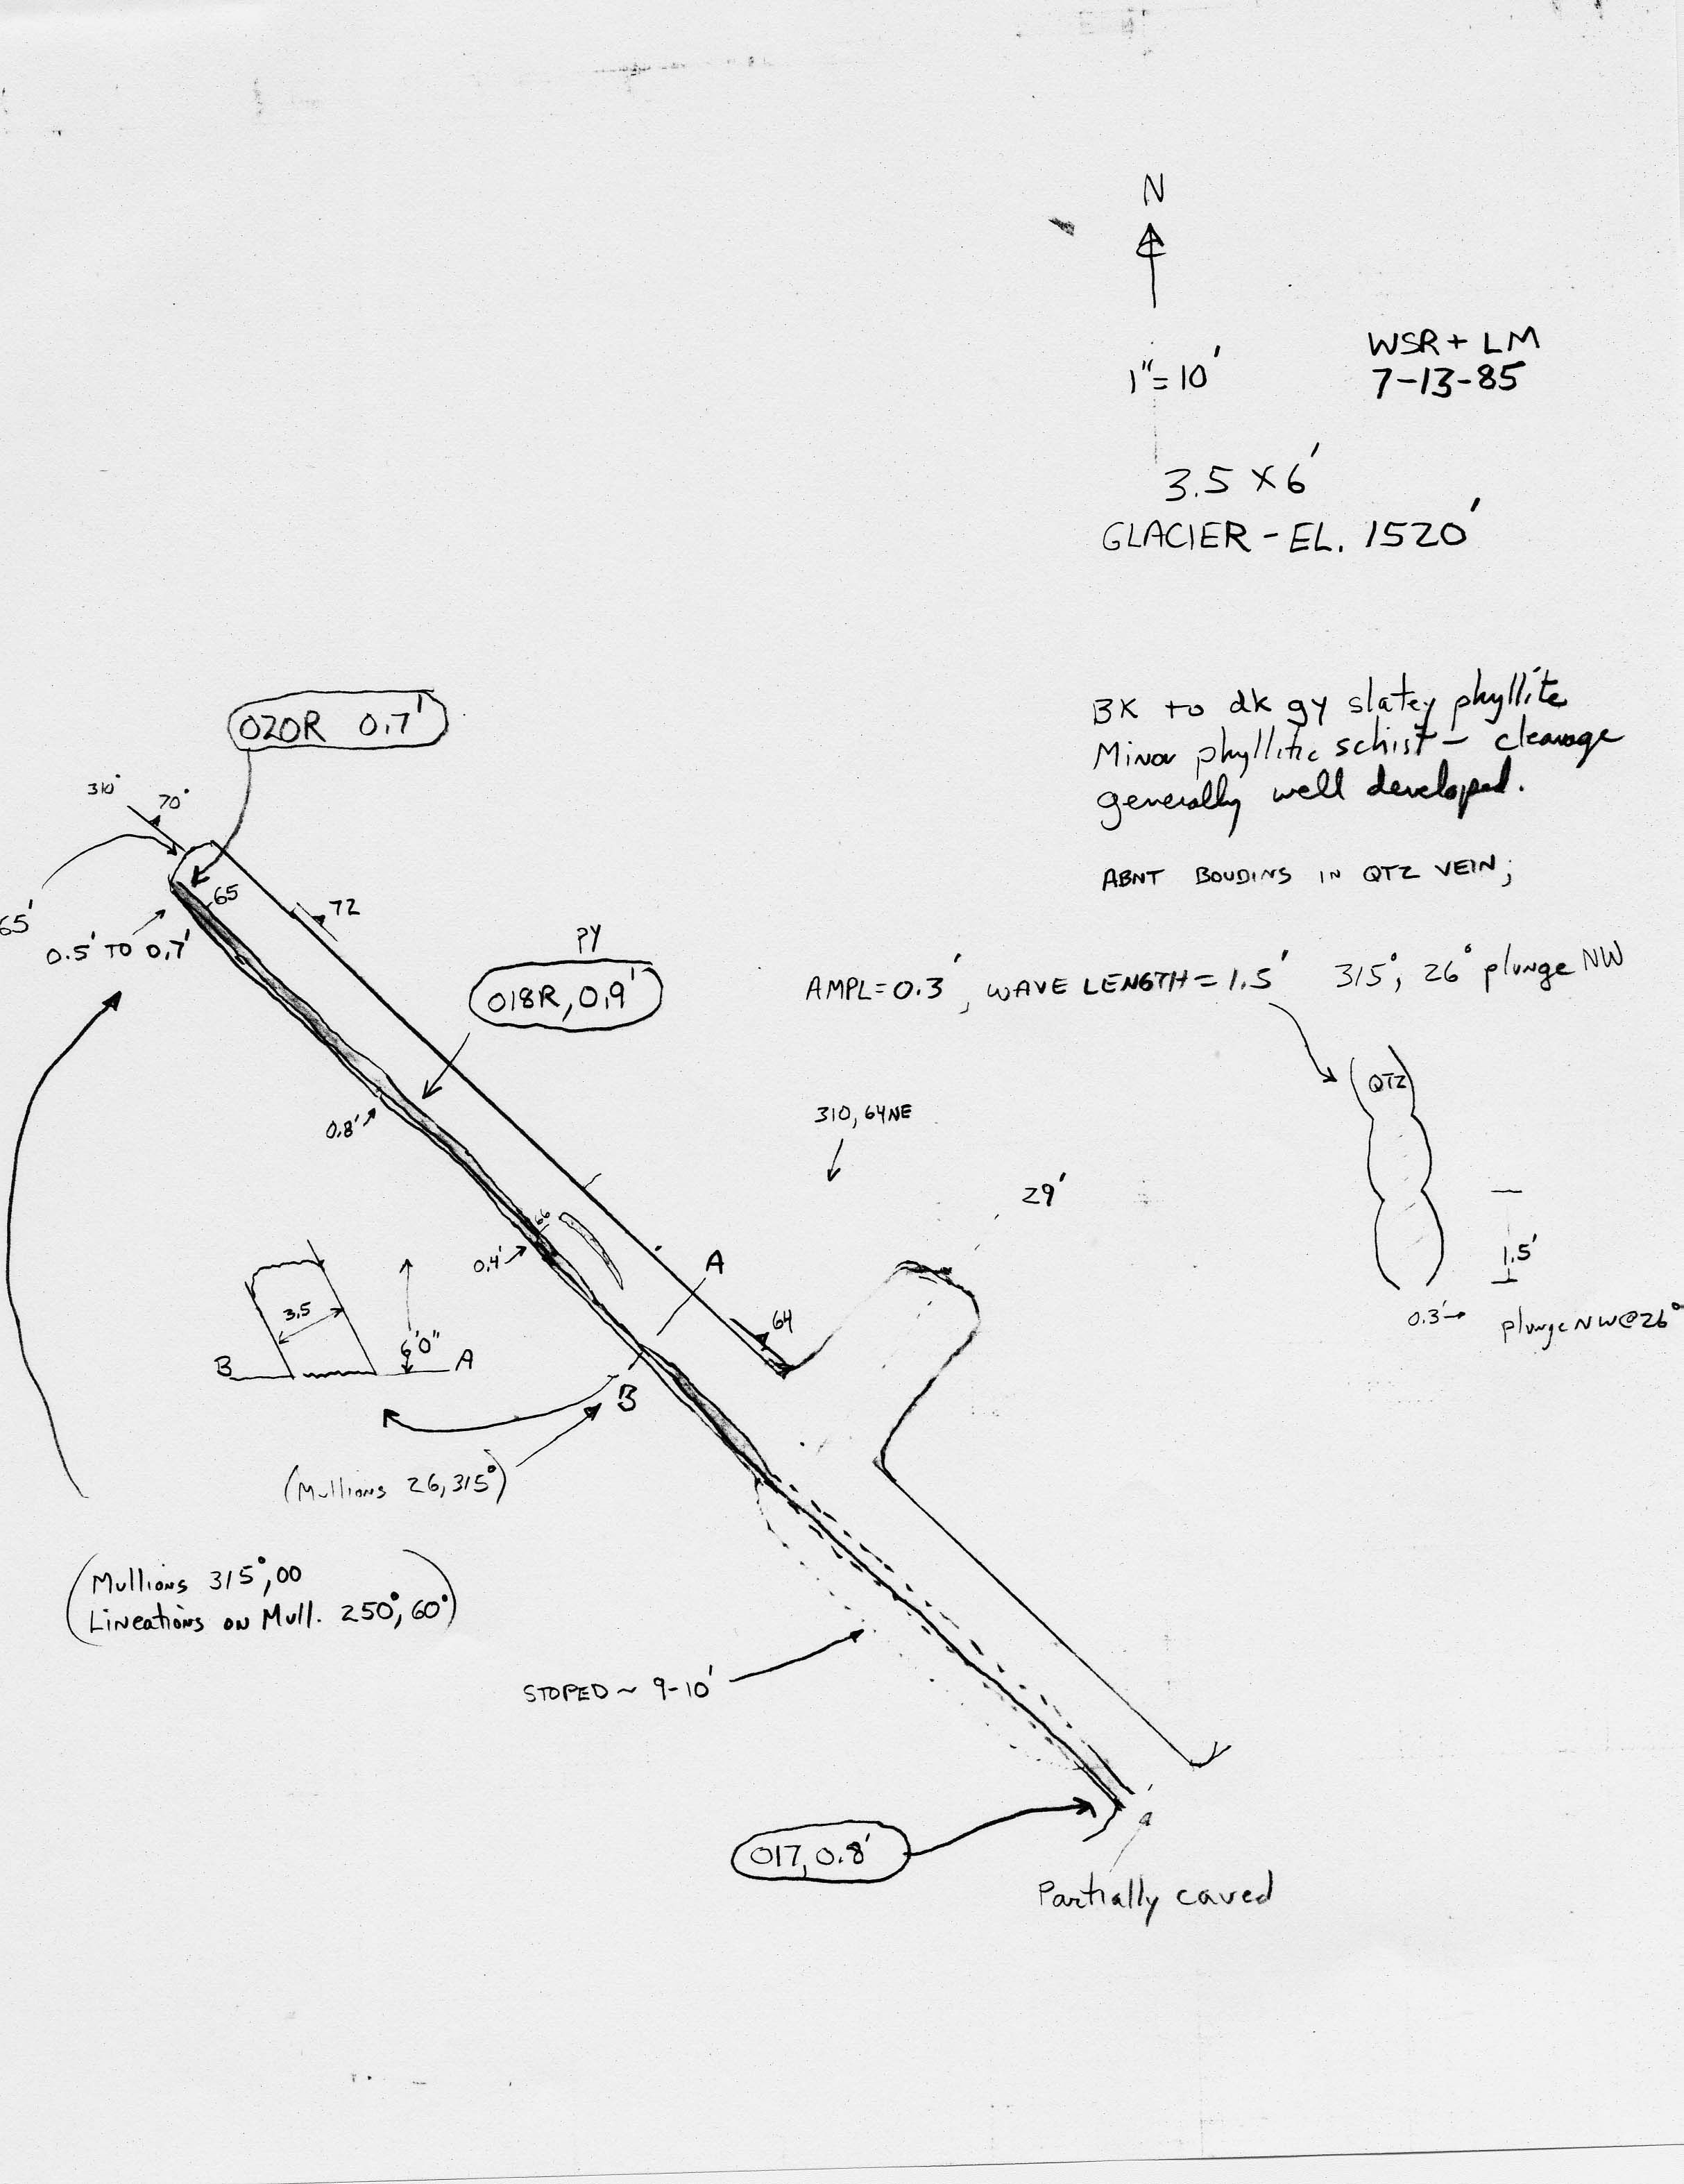 N
1"=10'
WSR + LM
7-13-85
3.5 X 6'
GLACIER - EL. 1520'
BK to dk gy slatey phyllite
Minor phyllitic schist - cleavage
generally well developed.
ABNT BOUDINS IN QTZ VEIN;
AMPL=0.3', WAVE LENGTH=1.5' 315°, 26° plunge NW
QTZ
1.5'
0.3'
plunge NW@26°
020R 0.7'
310°
70°
65
72
65'
0.5' TO 0.7'
PY
018R, 0.9'
0.8'
310, 64NE
29'
66
0.4'
A
64
3.5
6'0"
B
A
B
(Mullions 26, 315°)
(Mullions 315°, 00
Lineations on Mull. 250°, 60°)
STOPED ~ 9-10'
017, 0.8'
Partially caved